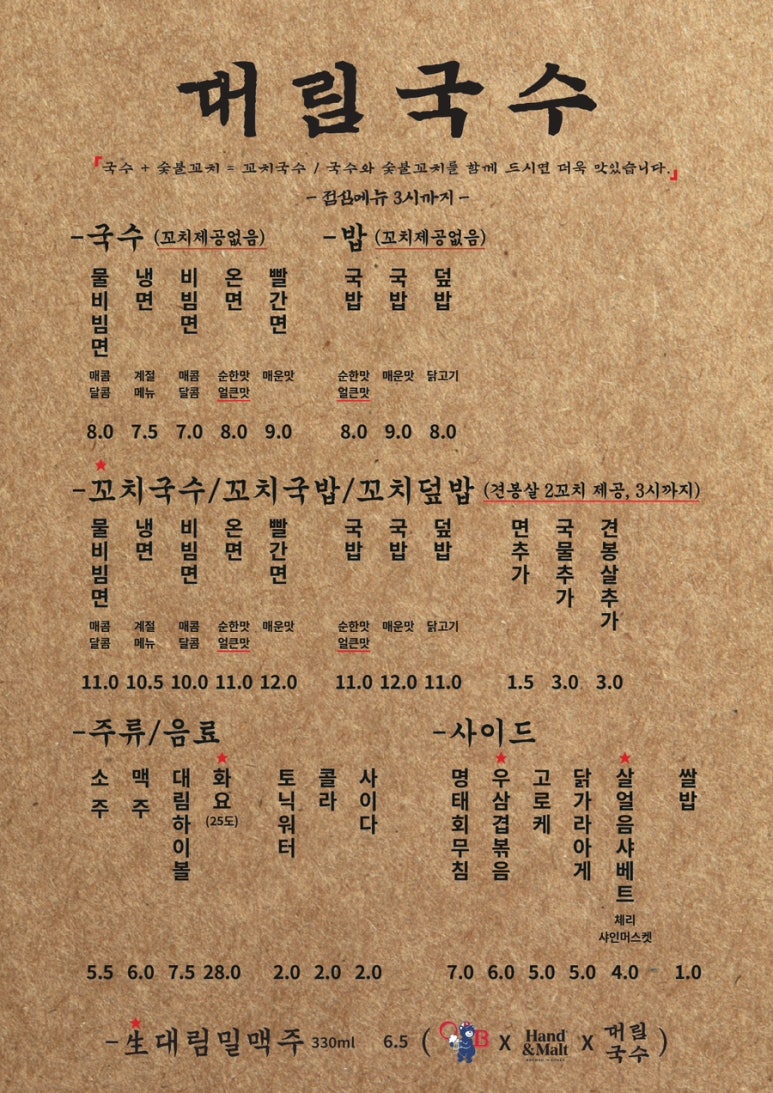 대림국수
「국수 + 숯불꼬치 = 꼬치국수 / 국수와 숯불꼬치를 함께 드시면 더욱 맛있습니다.」
- 점심메뉴 3시까지 -
-국수 (꼬치제공없음)
물비빔면 냉면 비빔면 온면 빨간면
매콤달콤 계절메뉴 매콤달콤 순한맛 얼큰맛 매운맛
8.0 7.5 7.0 8.0 9.0
-밥 (꼬치제공없음)
국밥 국밥 덮밥
순한맛 얼큰맛 매운맛 닭고기
8.0 9.0 8.0
-꼬치국수/꼬치국밥/꼬치덮밥 (견봉살 2꼬치 제공, 3시까지)
물비빔면 냉면 비빔면 온면 빨간면 국밥 국밥 덮밥 면추가 국물추가 견봉살추가
매콤달콤 계절메뉴 매콤달콤 순한맛 얼큰맛 매운맛 순한맛 얼큰맛 매운맛 닭고기
11.0 10.5 10.0 11.0 12.0 11.0 12.0 11.0 1.5 3.0 3.0
-주류/음료
소주 맥주 대림하이볼 화요 (25도) 토닉워터 콜라 사이다
5.5 6.0 7.5 28.0 2.0 2.0 2.0
-사이드
명태회무침 우삼겹볶음 고로케 닭가라아게 살얼음샤베트 쌀밥
체리
샤인머스켓
7.0 6.0 5.0 5.0 4.0 1.0
-生대림밀맥주 330ml 6.5 ( OB X Hand &Malt X 대림국수 )